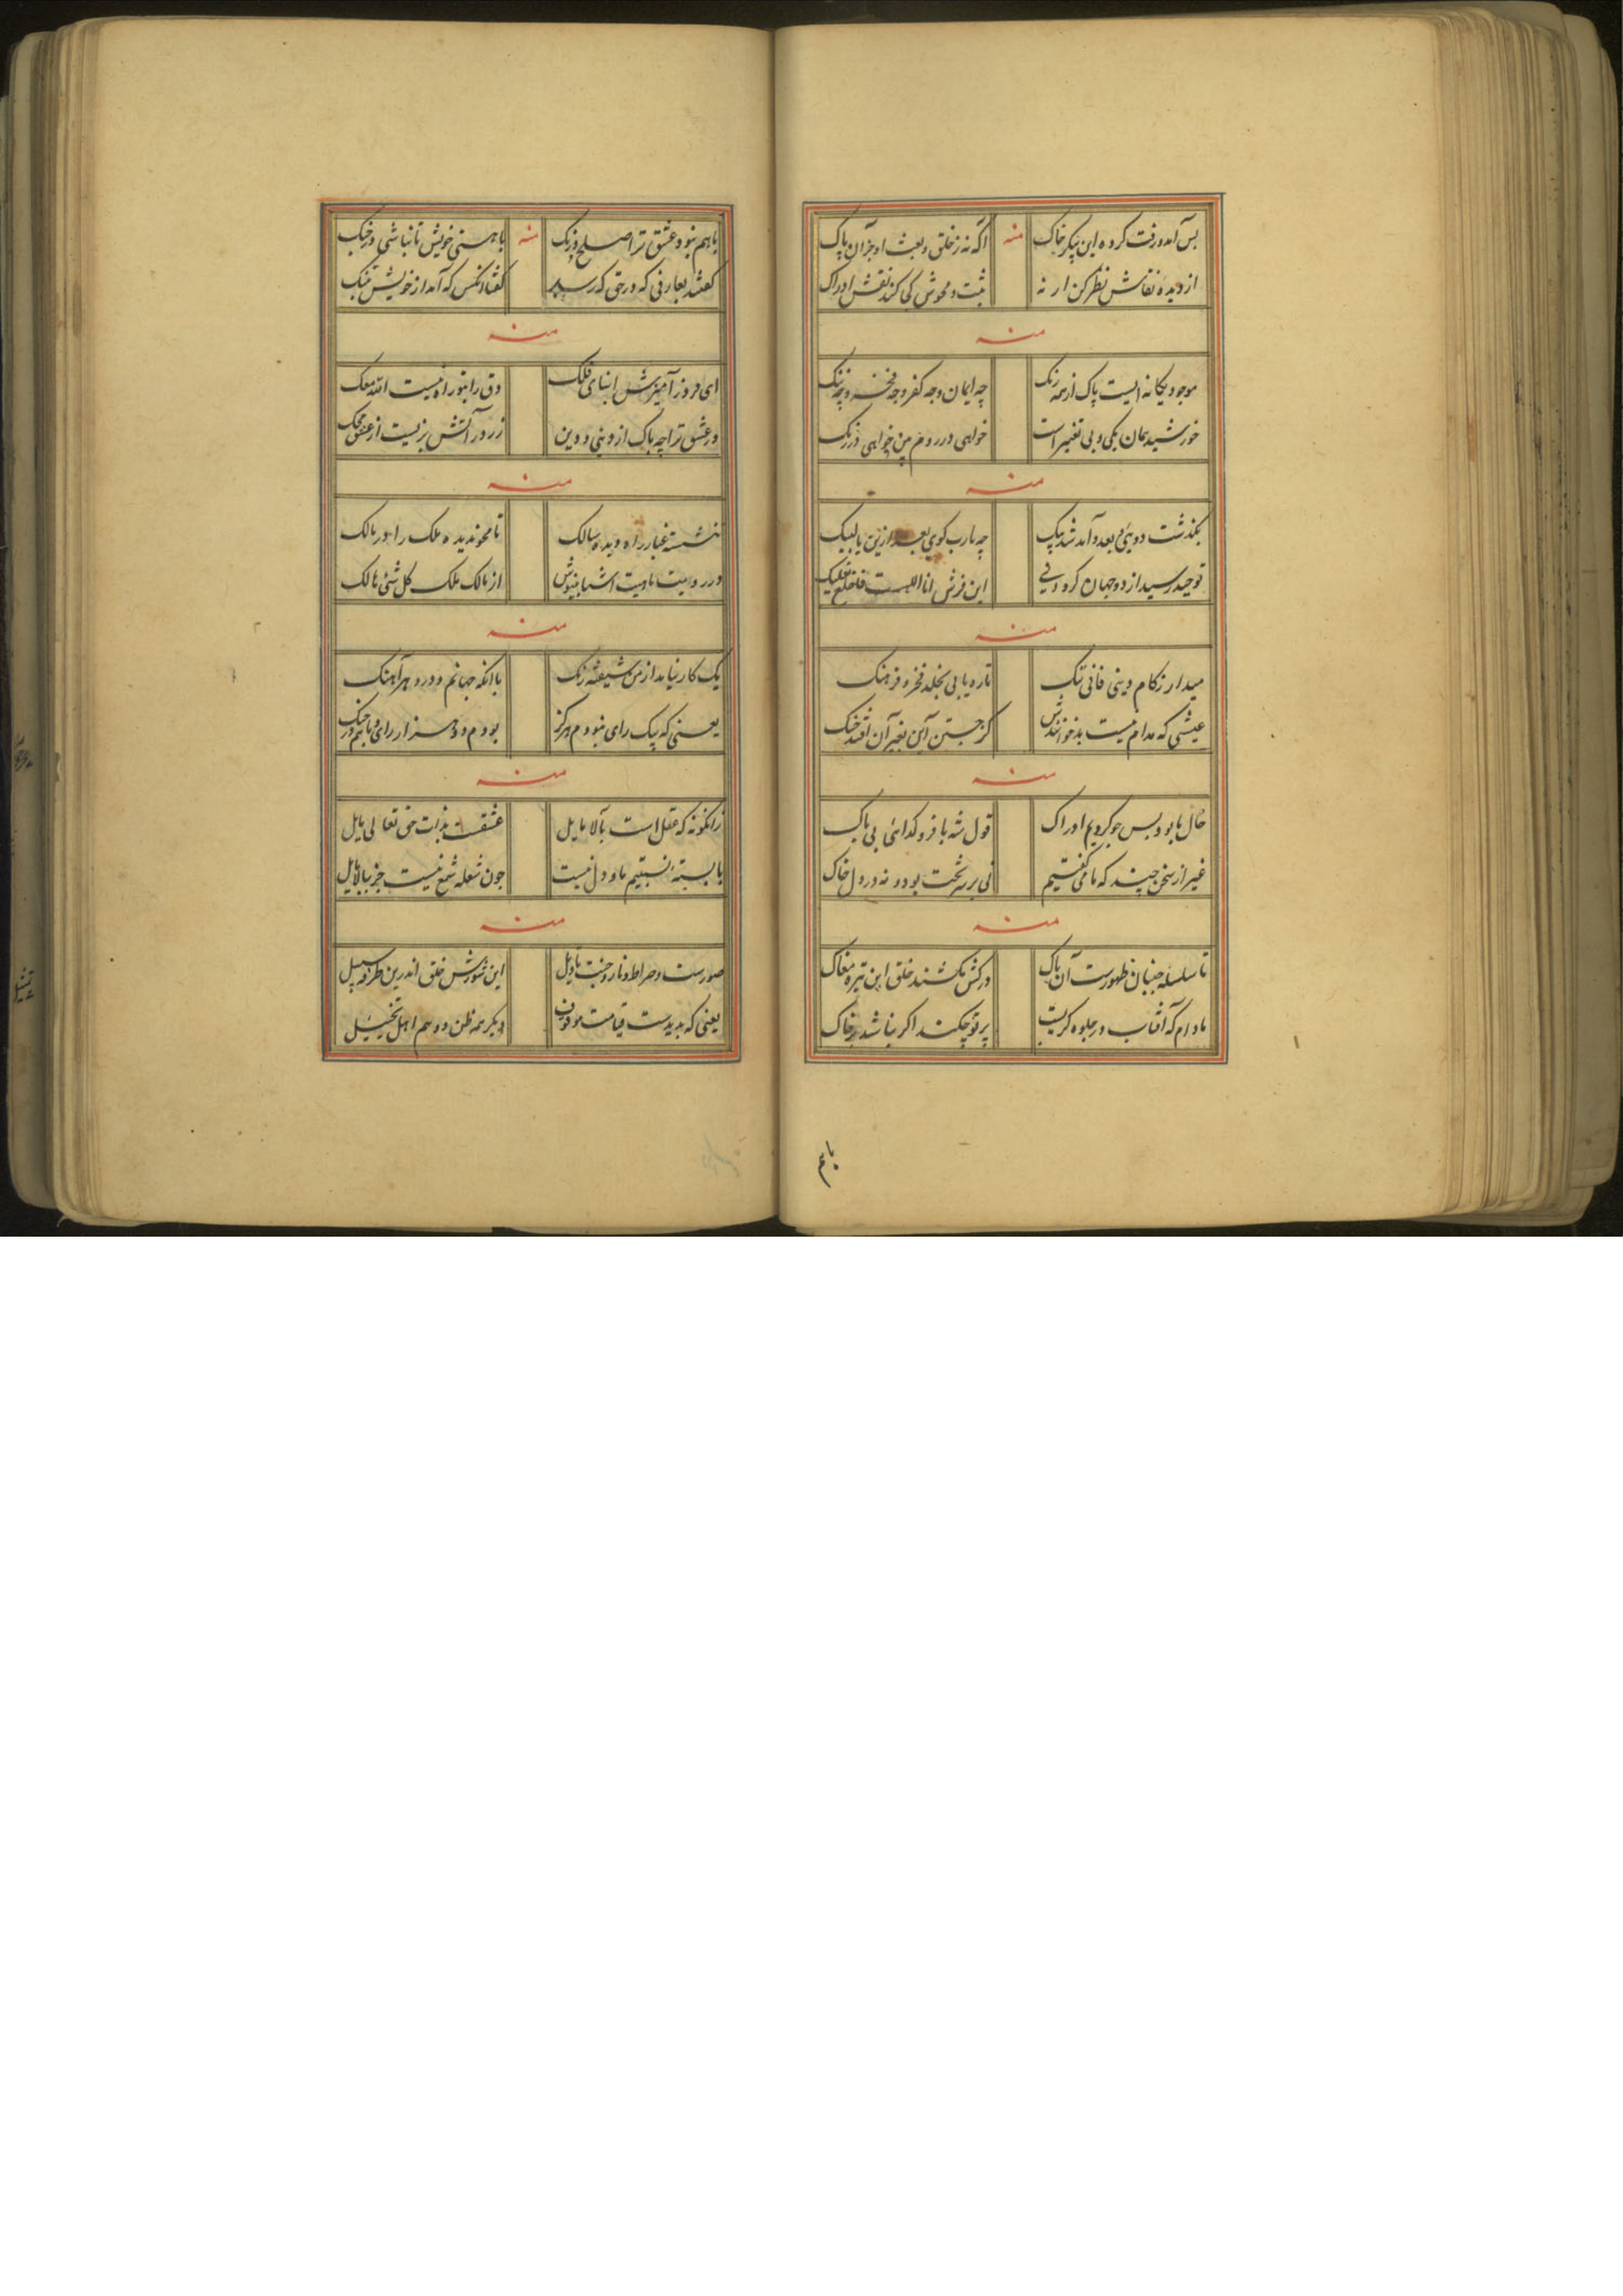 بس آمد و رفت کرده این پیکر خاک منه اگه نه ز خلق و بعث او جز آن پاک
از دیده نقاش نظر کن ار نه ثبت و محوش کی کند نقش ادراک
منه
موجود یگانه ایست پاک از همه رنگ چه ایمان و چه کفر و چه فخر و چه ننگ
خورشید همان یکی و بی تغییر است خواهی در روم بین خواهی در زنگ
منه
بگذشت دویی و بعد و آمد شد پیک چه یارب گوی بعد ازین یا لبیک
توحید رسید از دو جهان کرد این فرش انا الله است فاخلع نعلیک
منه
میدار ز کام دینی فانی ننگ تا ره یابی بخلد فخر و فرهنگ
عیشی که مدام نیست بد خوانندش کز جستن این بغیر آن افتد جنگ
منه
حال ما بود بس چو کردیم ادراک قول شه با فر و گدائی بی باک
غیر از سخن چند که ما می گفتیم نی بر سر تخت بود و نه در دل خاک
منه
تا سلسله جنبان ظهورست آن پاک درکش نکشند خلق این تیره مغاک
مادام که آفتاب در جلوه گریست پرتو چکند اگر نباشد بر خاک
باهم نبود عشق ترا صلح و رنگ منه با هستی خویش تا نباشی در جنگ
گفتند بعارفی که در حق که رسید گفتا آنکس که آمد از خویش بتنگ
منه
ای فروز آمیزش ابنای فلک وق را بتو راه نیست الله معک
در عشق ترا چه باک از دینی و دین زر در آتش بریست از عشق محک
منه
ننشسته غبار راه دیده سالک تا محو ندیده ملک را در مالک
در رؤیت ماهیت اشیا بنیوش از مالک ملک کل شئی هالک
منه
یک کار نیامد از من شیفته رنگ با آنکه جهانم و درو هر آهنگ
یعنی که بیک رای نبودم هرگز بودم دو هزار رای و باهم در جنگ
منه
زانگونه که عقل است بآلا مایل عشقست بذات حق تعالی مایل
پا بسته نسبتیم ما و دل نیست چون شعله شمع نیست جز ببالا مایل
منه
صورست و صراط و نار و جنت تاویل این شورش خلق اندرین طرفه سبیل
یعنی که پدیدست قیامت موقوف دیگر همه ظن و وهم اهل تخییل